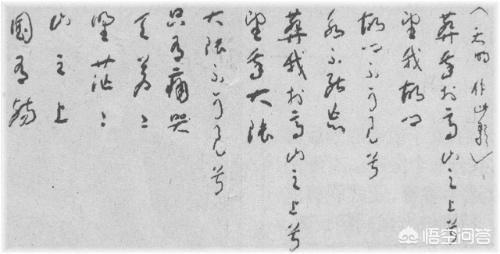 （天明作此歌）
葬我於高山之上兮
望我故乡
故乡不可見兮
永不能忘
葬我於高山之上兮
望我大陸
大陸不可見兮
只有痛哭
天蒼〻
野茫〻
山之上
國有殤
悟空问答